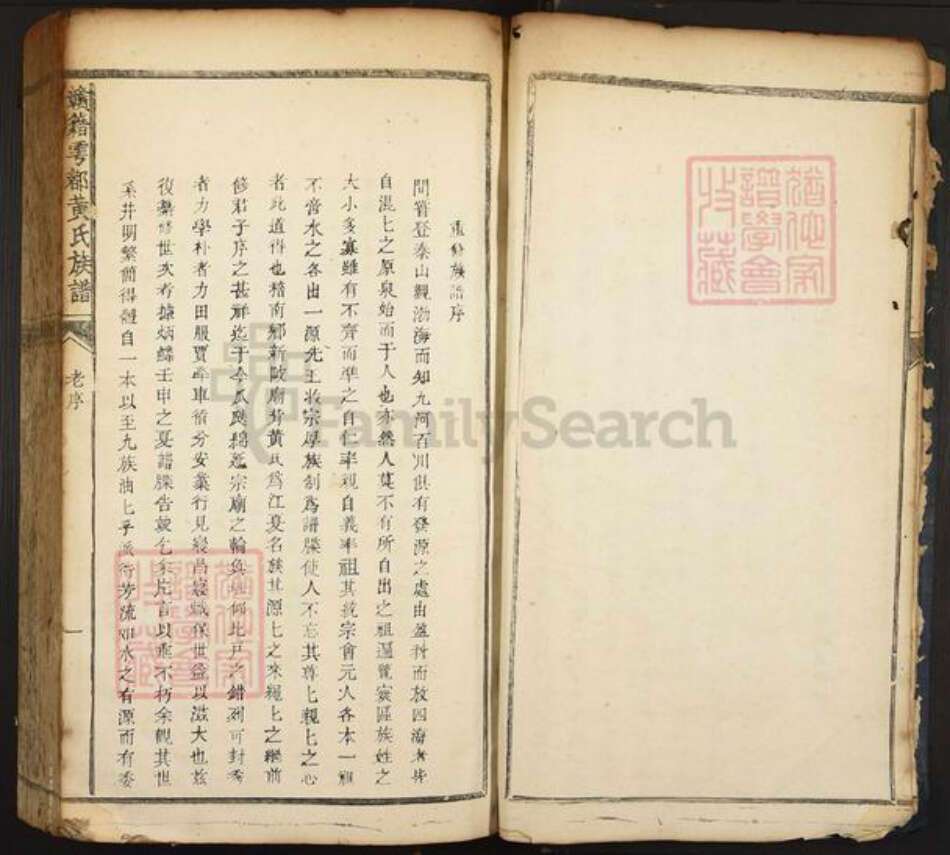 重修族譜序
間嘗登泰山觀渤海而知九河百川俱有發源之處由盈科而放四海者毕
自混匕之原泉始而于人也亦然人莫不有所自出之祖遍覽寰區族姓之
大小多寡雖有不齊而準之自仁率親自義率祖其統宗會元人各本一祖
不啻水之各出一源先王收宗厚族制爲譜牒使人不忘其尊匕親匕之心
者此道得也精南鄉新陂廟背黄氏爲江夏名族其源匕之來繩匕之繼前
修君子序之甚詳迄于今瓜瓞綿延宗廟之輪奐 比戸之錯列可封秀
者力學朴者力田服賈牽車 分安業行見寖昌寖熾保世益以滋大也兹
復纂修世次考據炳麟壬申之夏譜牒告竣乞余片言以垂不朽余觀其世
系井明繁簡得體自一本以至九族油匕乎 芳流如水之有源而有委
贛籍雩都黄氏族譜
老序
一
猶他家
譜學會
收藏
猶他家
譜學會
收藏
FamilySearch